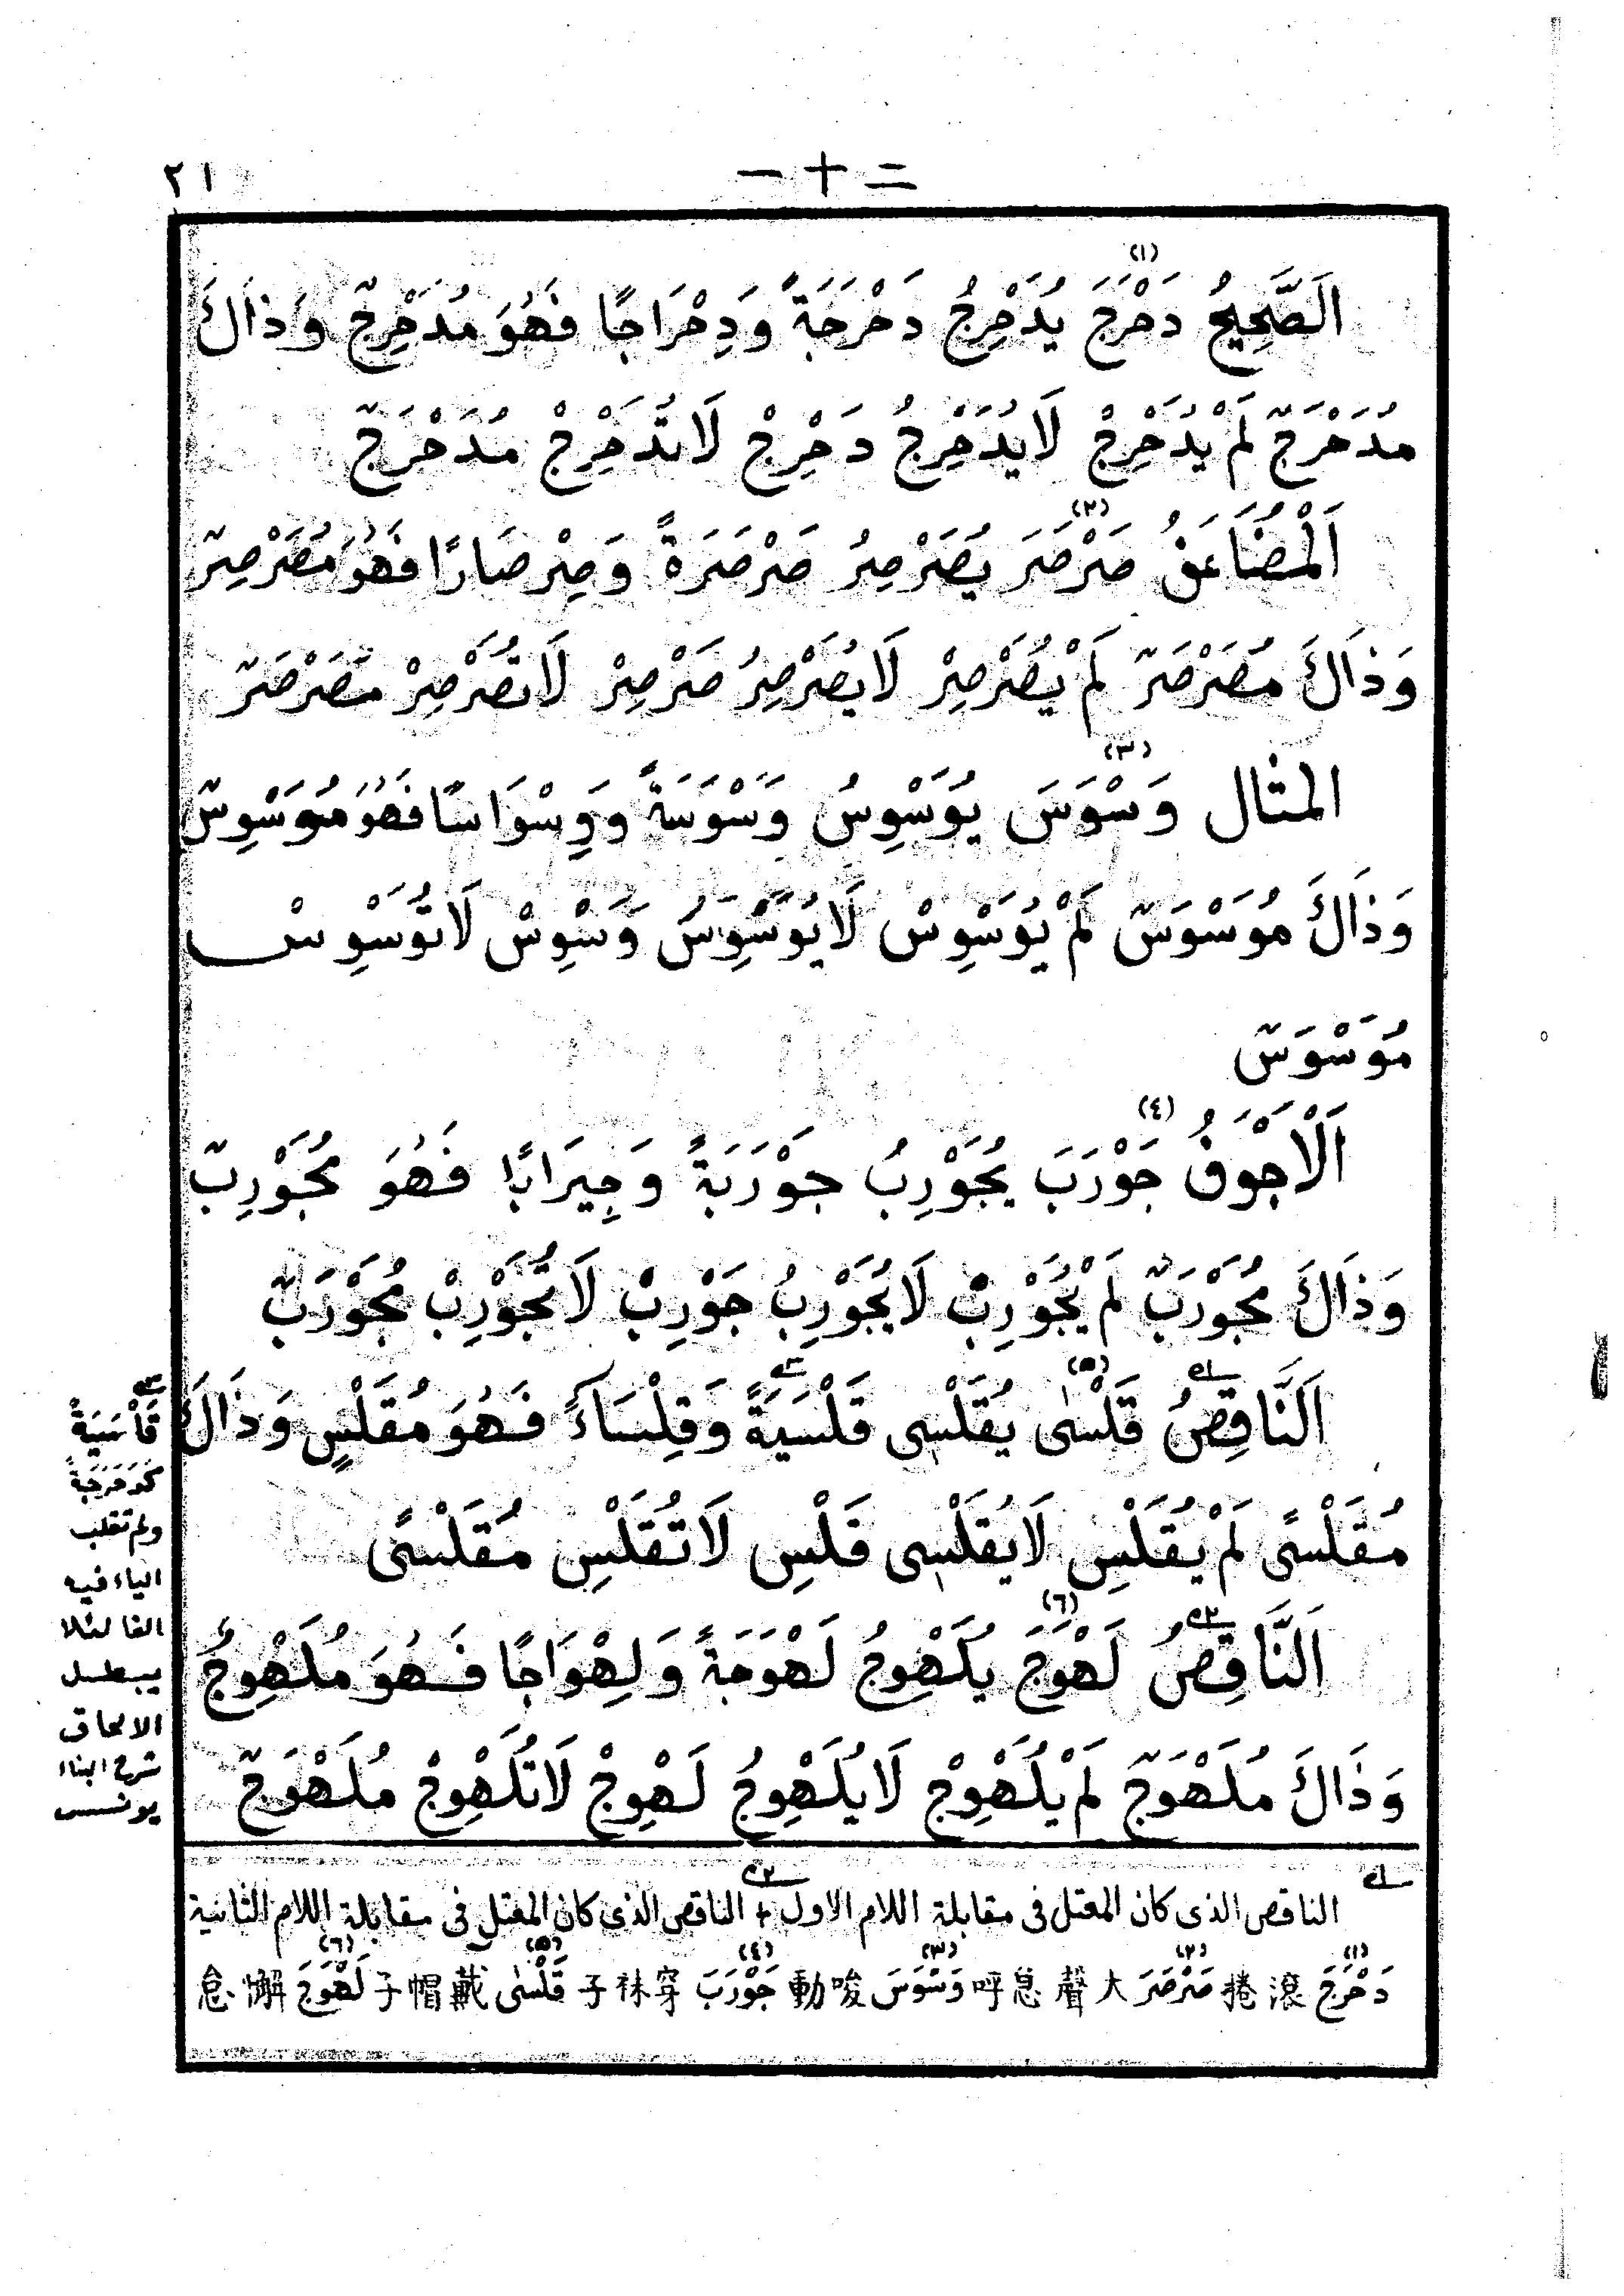 ٢١
一十二
(١)
اَلصَّحِيحُ دَحْرَجَ يُدَحْرِجُ دَحْرَجَةً وَدِحْرَاجًا فَهُوَ مُدَحْرِجٌ وَذَاكَ
مُدَحْرَجٌ لَمْ يُدَحْرِجْ لَا يُدَحْرِجُ دَحْرِجْ لَا تُدَحْرِجْ مُدَحْرَجٌ
(٢)
اَلْمُضَاعَفُ صَرْصَرَ يُصَرْصِرُ صَرْصَرَةً وَصِرْصَارًا فَهُوَ مُصَرْصِرٌ
وَذَاكَ مُصَرْصَرٌ لَمْ يُصَرْصِرْ لَا يُصَرْصِرُ صَرْصِرْ لَا تُصَرْصِرْ مُصَرْصَرٌ
(٣)
المثال وَسْوَسَ يُوَسْوِسُ وَسْوَسَةً وَوِسْوَاسًا فَهُوَ مُوَسْوِسٌ
وَذَاكَ مُوَسْوَسٌ لَمْ يُوَسْوِسْ لَا يُوَسْوِسُ وَسْوِسْ لَا تُوَسْوِسْ
مُوَسْوَسٌ
(٤)
اَلْاَجْوَفُ جَوْرَبَ يُجَوْرِبُ جَوْرَبَةً وَجِيرَابًا فَهُوَ مُجَوْرِبٌ
وَذَاكَ مُجَوْرَبٌ لَمْ يُجَوْرِبْ لَا يُجَوْرِبُ جَوْرِبْ لَا تُجَوْرِبْ مُجَوْرَبٌ
(٥)
اَلنَّاقِصُ قَلْسٰى يُقَلْسِى قَلْسَيَةً وَقِلْسَاءً فَهُوَ مُقَلْسٍ وَذَاكَ
مُقَلْسًى لَمْ يُقَلْسِ لَا يُقَلْسِى قَلْسِ لَا تُقَلْسِ مُقَلْسًى
(٦)
اَلنَّاقِصُ لَهْوَجَ يُلَهْوِجُ لَهْوَجَةً وَلِهْوَاجًا فَهُوَ مُلَهْوِجٌ
وَذَاكَ مُلَهْوَجٌ لَمْ يُلَهْوِجْ لَا يُلَهْوِجُ لَهْوِجْ لَا تُلَهْوِجْ مُلَهْوَجٌ
قَلْسَيَةً
كَدَحْرَجَةً
ولم تقلب
الياء فيه
الفا لئلا
يبطل
الالحاق
شرح البناء
يونس
الناقص الذى كان المعتل فى مقابلة اللام الاول + الناقص الذى كان المعتل فى مقابلة اللام الثانية
(١) (٢) (٣) (٤) (٥) (٦)
دَحْرَجَ 滾捲 صَرْصَرَ 大聲忽呼 وَسْوَسَ 唆動 جَوْرَبَ 穿袜子 قَلْسٰى 戴帽子 لَهْوَجَ 懈怠